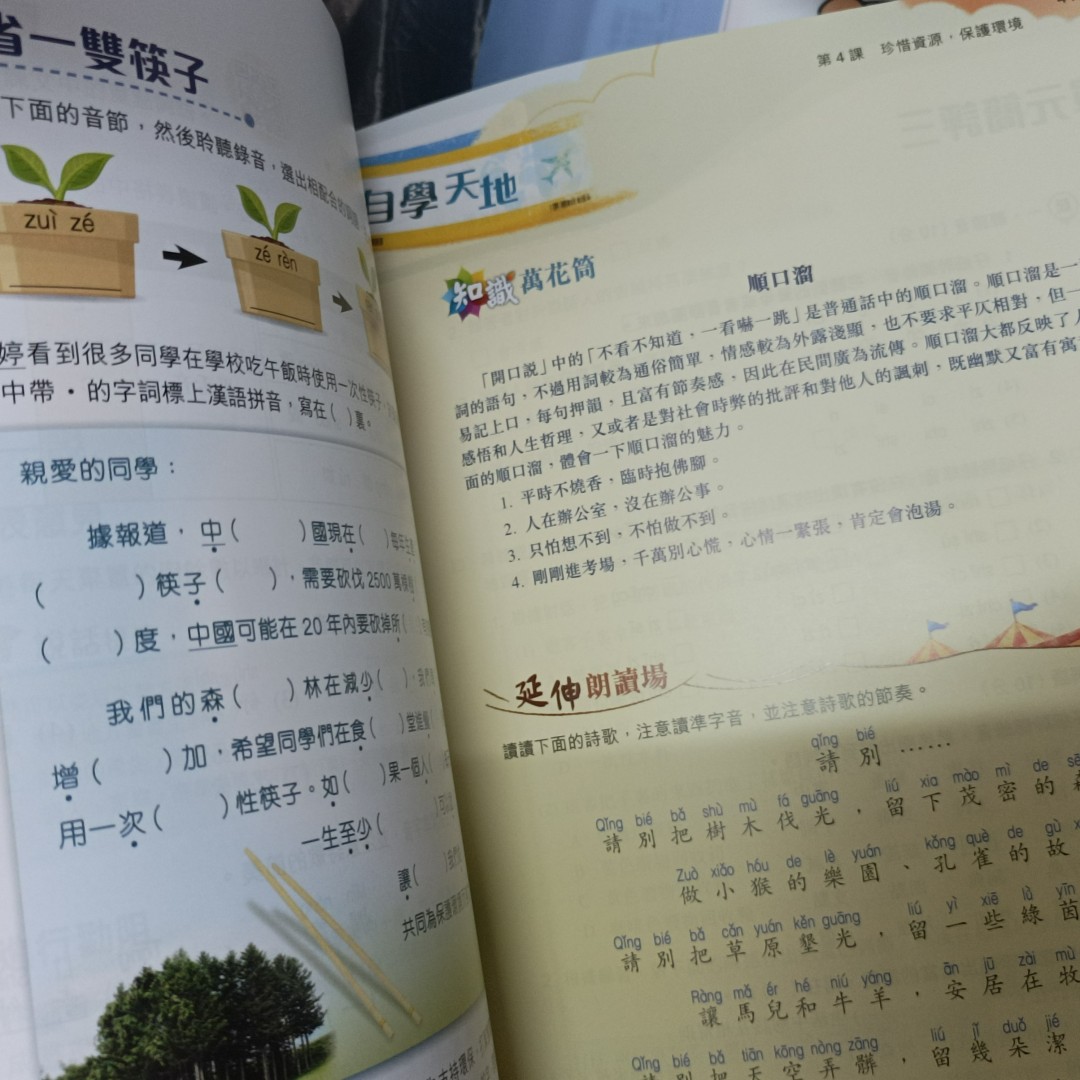 省一雙筷子
下面的音節，然後聆聽錄音，選出相配合的
zuì zé
zé rèn
婷看到很多同學在學校吃午飯時使用一次性筷子
中帶・的字詞標上漢語拼音，寫在( )裏。
親愛的同學：
據報道，中( )國現在( )每年
( )筷子( )，需要砍伐2500萬棵
( )度，中國可能在20年內要砍掉所(
我們的森( )林在減少( )，我
增( )加，希望同學們在食( )堂
用一次( )性筷子。如( )果一個人(
一生至少(
讓(
共同為保護
支持環保
第4課 珍惜資源，保護環境
自學天地
知識萬花筒
順口溜
「開口說」中的「不看不知道，一看嚇一跳」是普通話中的順口溜。順口溜是一
詞的語句，不過用詞較為通俗簡單，情感較為外露淺顯，也不要求平仄相對，但一
易記上口，每句押韻，且富有節奏感，因此在民間廣為流傳。順口溜大都反映了
感悟和人生哲理，又或者是對社會時弊的批評和對他人的諷刺，既幽默又富有寓
面的順口溜，體會一下順口溜的魅力。
1. 平時不燒香，臨時抱佛腳。
2. 人在辦公室，沒在辦公事。
3. 只怕想不到，不怕做不到。
4. 剛剛進考場，千萬別心慌，心情一緊張，肯定會泡湯。
延伸朗讀場
讀讀下面的詩歌，注意讀準字音，並注意詩歌的節奏。
qǐng bié
請別……
Qǐng bié bǎ shù mù fá guāng liú xia mào mì de sē
請別把樹木伐光，留下茂密的森
Zuò xiǎo hóu de lè yuán kǒng què de gù x
做小猴的樂園、孔雀的故
Qǐng bié bǎ cǎo yuán kěn guāng liú yì xiē lǜ yīn
請別把草原墾光，留一些綠茵
Ràng mǎ ér hé niú yáng ān jū zài mù
讓馬兒和牛羊，安居在牧
Qǐng bié bǎ tiān kōng nòng zāng liú jǐ duǒ jié
請別把天空弄髒，留幾朵潔